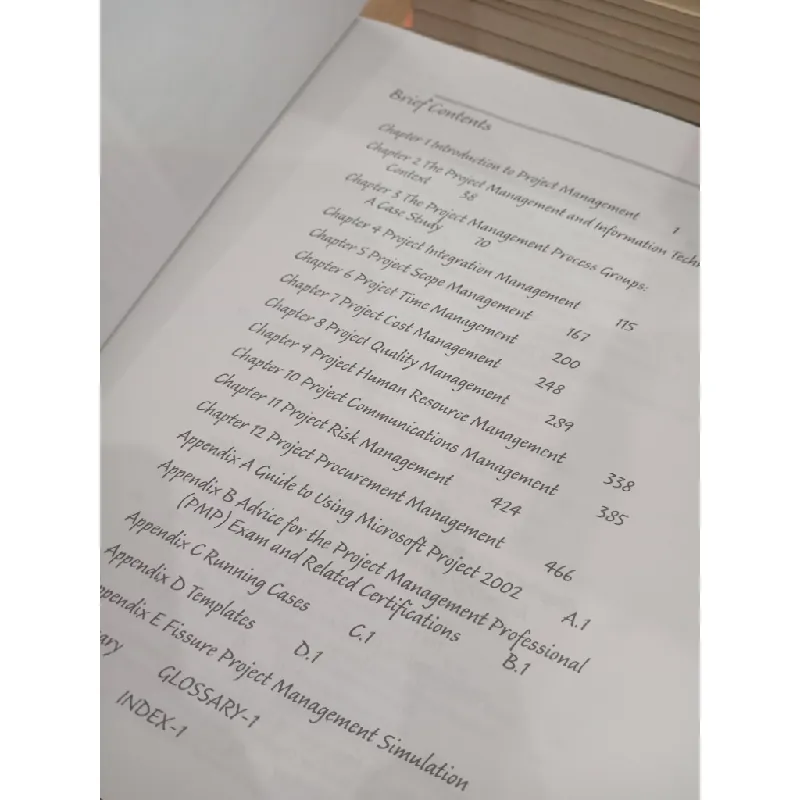 Brief Contents
Chapter 1 Introduction to Project Management 1
Chapter 2 The Project Management and Information
Context 38
Chapter 3 The Project Management Process Groups:
A Case Study 70
Chapter 4 Project Integration Management 115
Chapter 5 Project Scope Management 167
Chapter 6 Project Time Management 200
Chapter 7 Project Cost Management 248
Chapter 8 Project Quality Management 289
Chapter 9 Project Human Resource Management 338
Chapter 10 Project Communications Management 385
Chapter 11 Project Risk Management 424
Chapter 12 Project Procurement Management 466
Appendix A Guide to Using Microsoft Project 2002 A.1
Appendix B Advice for the Project Management Professional
(PMP) Exam and Related Certifications B.1
Appendix C Running Cases C.1
Appendix D Templates D.1
ppendix E Fissure Project Management Simulation
ary GLOSSARY-1
INDEX-1